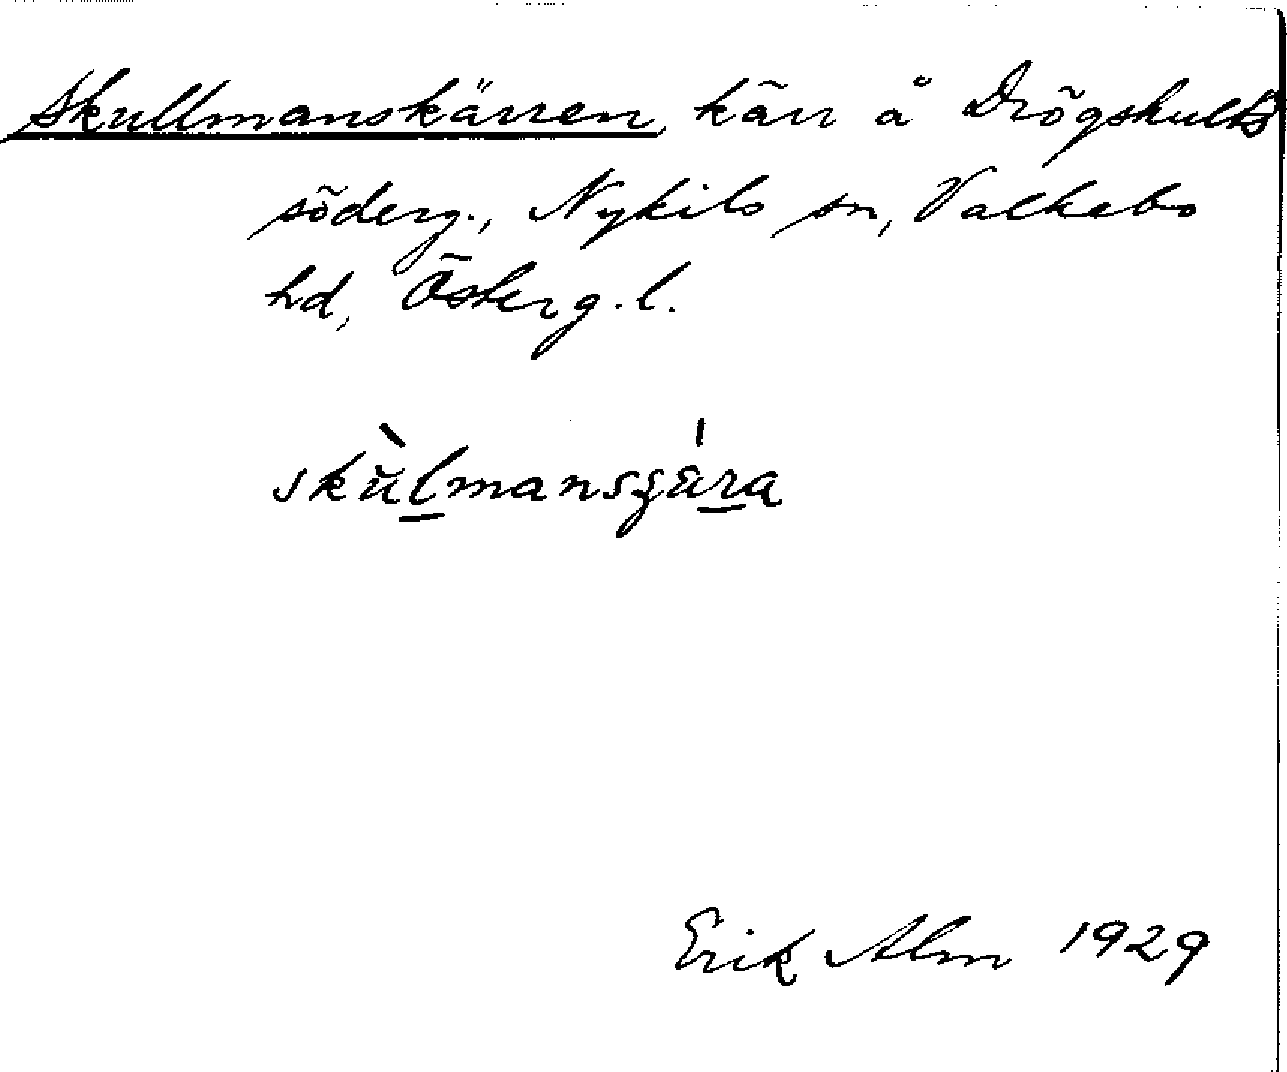 Skullmanskärren, kärr å Drögshults
söderg., Nykils sn, Valkebo
hd, Österg.l.
skùl̠mansʂá̠ra
Erik Alm 1929